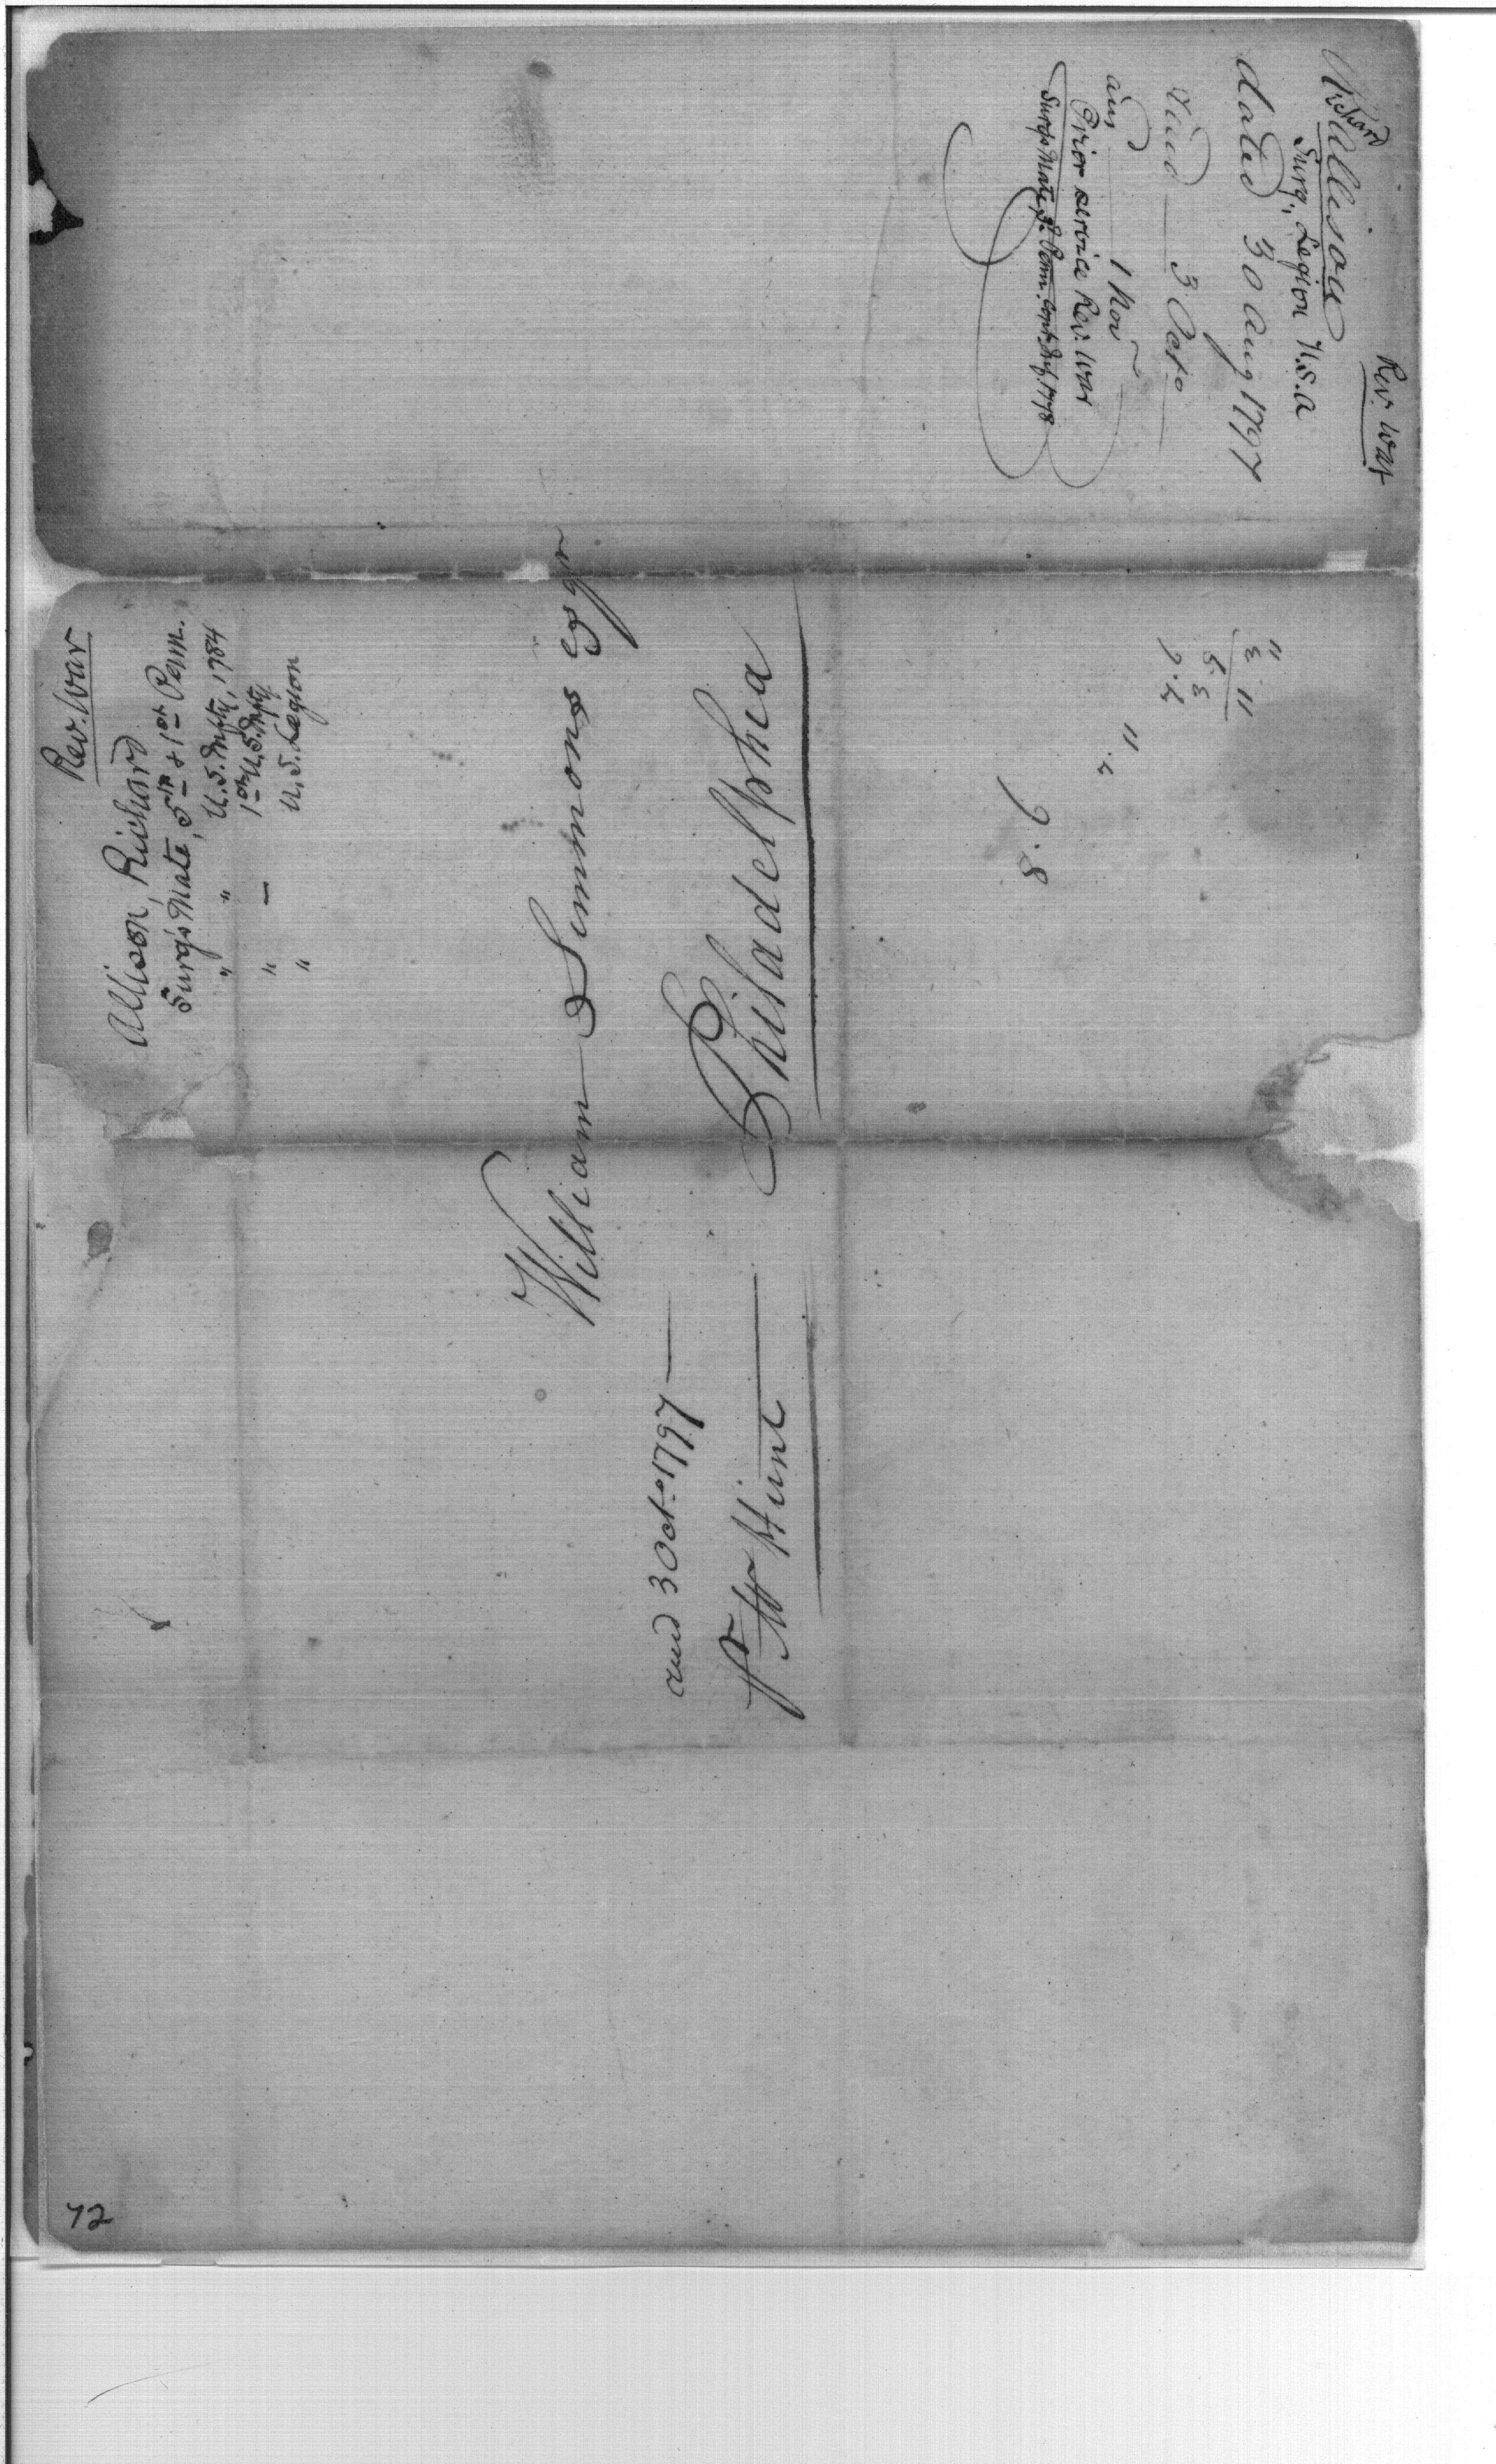 Rev. War
Richard
Allison
Surg. Legion U.S.A
dated 30 Aug 1797
Recd 3 Octo
ans 1 Nov
Prior service Rev. War
Surgs Mate, 5. Penn. Cont. Inf 1778
Rev. War
Allison, Richard
Surg's Mate, 5th & 1st Penn.
" " U.S. Infty, 1784
" — 1st U.S. Infty.
" U.S. Legion
William Simmons Esqr
Philadelphia
recd 3 Octo 1797
Mr Hunt
" 11
3
5.3
9.2
11.2
9.8
72